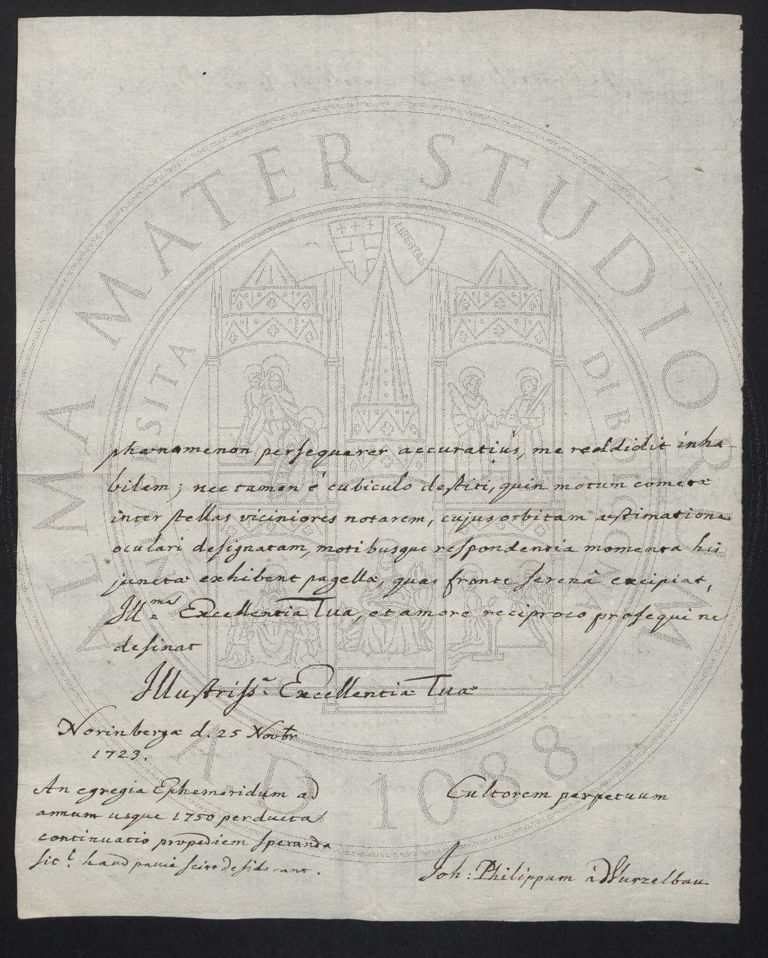 ALMA MATER STUDIORUM
A.D. 1088
LIBERTAS
phænomenon persequerer accuratiús, me reddidit inha-
bilem; nec tamen é cubiculo destiti, quin motum cometæ
inter stellas viciniores notarem, cujus orbitam æstimatione
oculari designatam, motibusque respondentia momenta his
juncta exhibent pagellæ, quas fronte serenâ excipiat,
Illma Excellentia Tua, et amore reciproco prosequi ne
desinat
Illustriss. Excellentiæ Tuæ
Norinbergæ d. 25 Novbr
1723.
Cultorem perpetuum
Joh: Philippum à Wurzelbau
An egregia Ephemeridum ad
annum usque 1750 perducta
continuatio propediem speranda
sit? haud pauci scire desiderant.